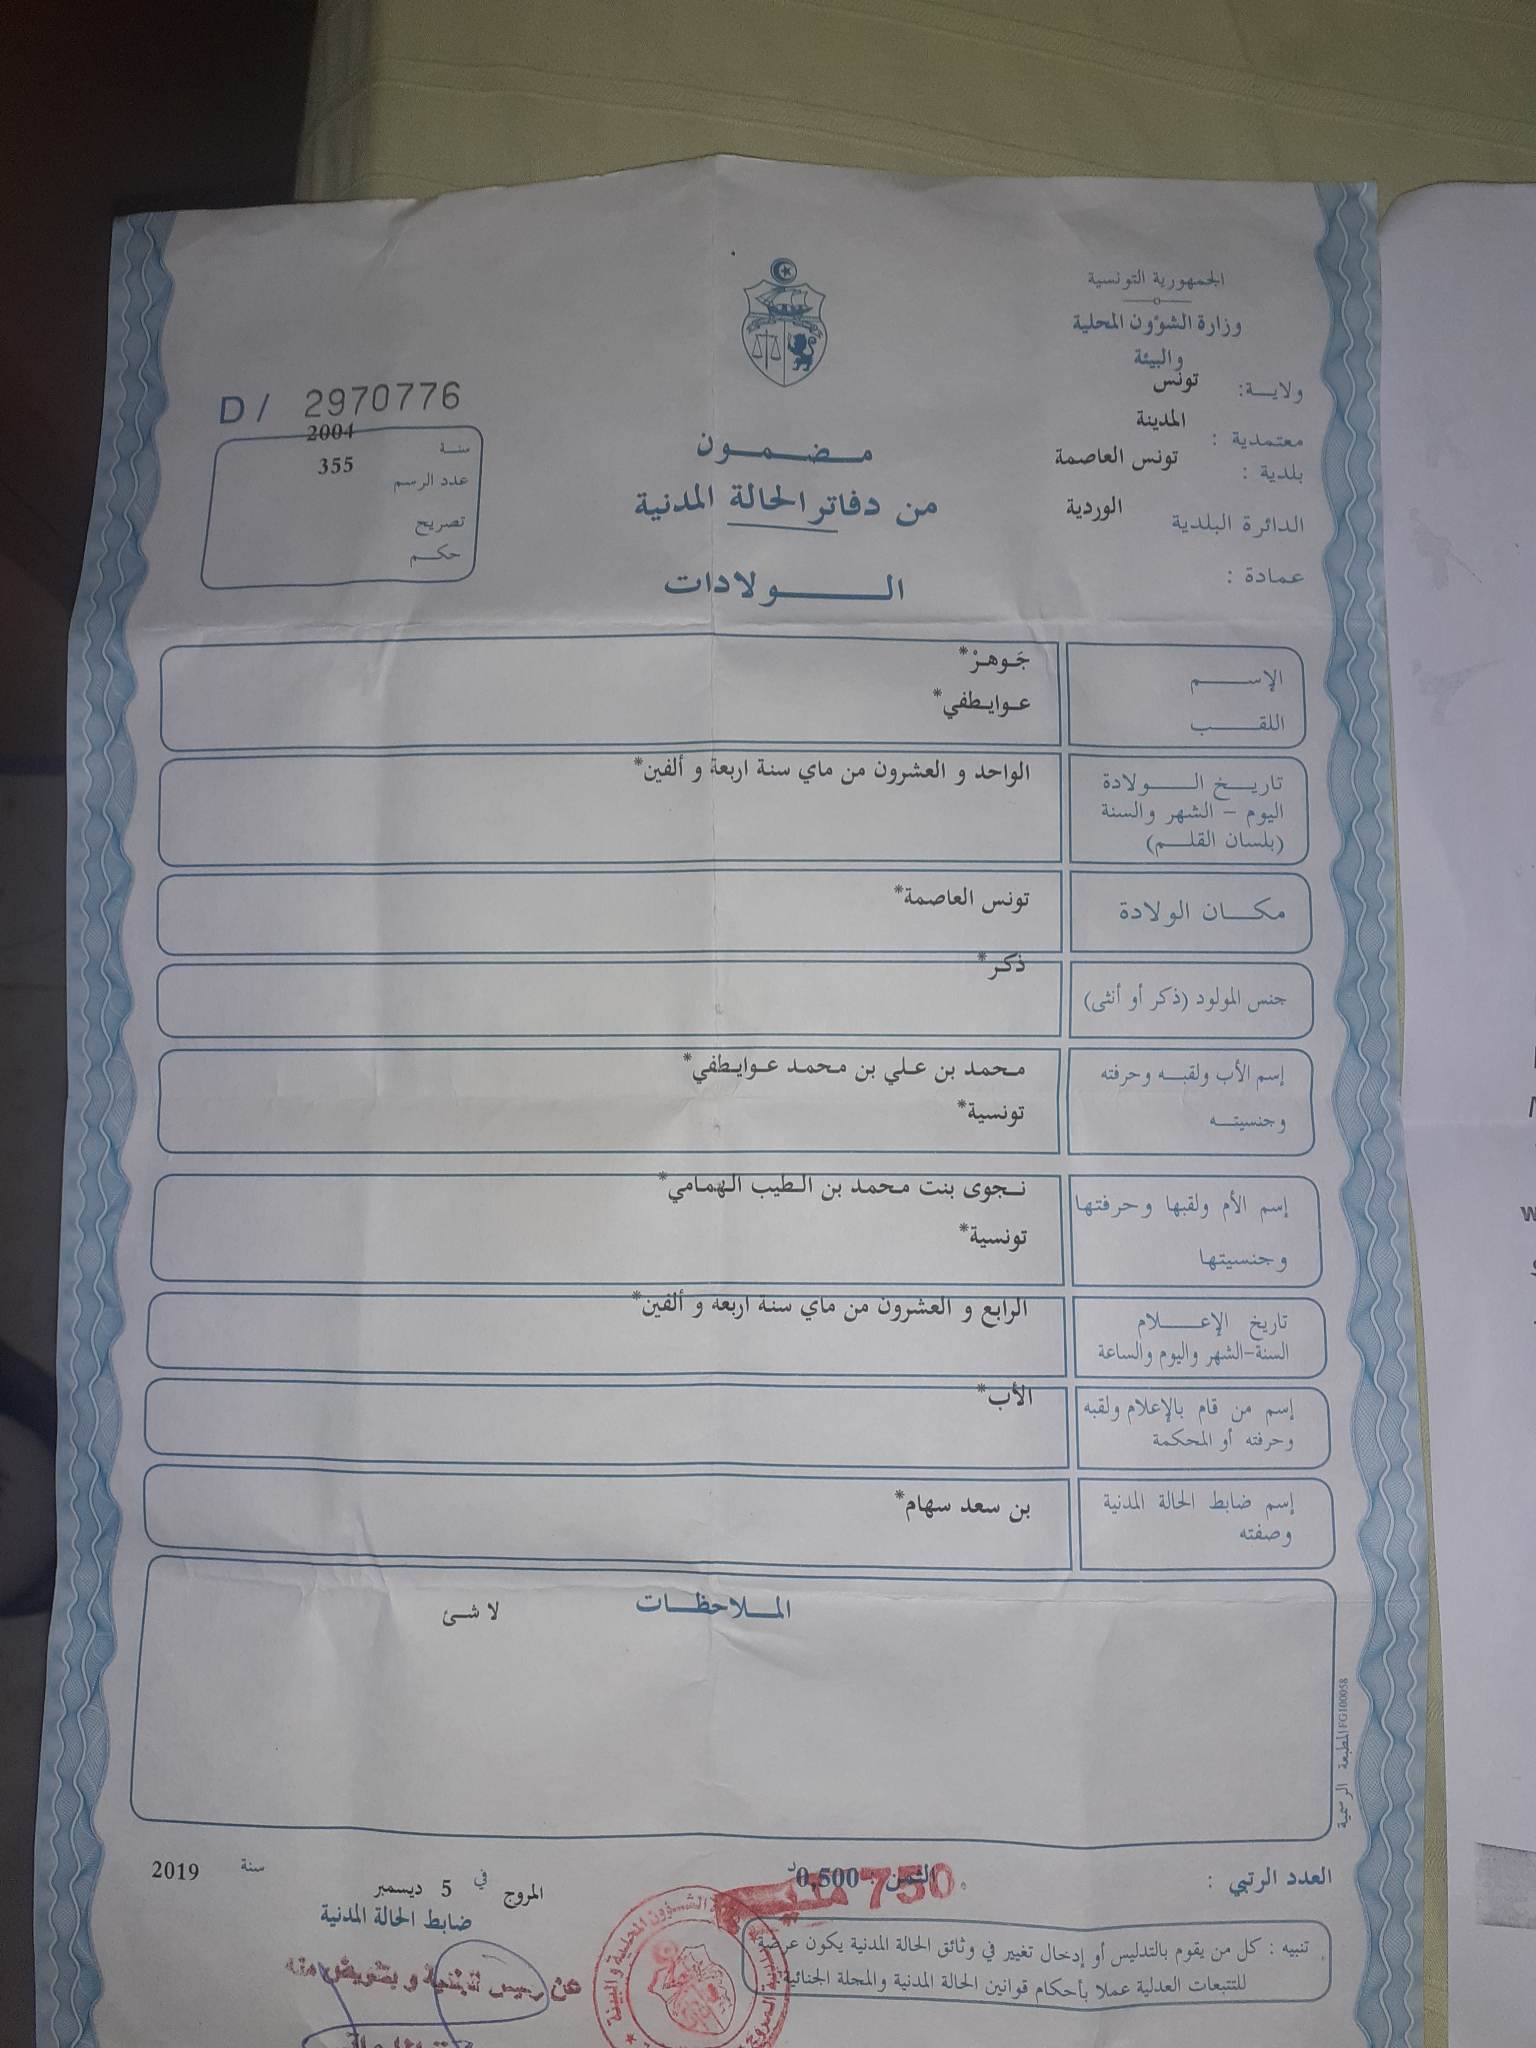 الجمهورية التونسية
وزارة الشؤون المحلية
والبيئة
ولايــة: تونس
معتمدية : المدينة
بلدية : تونس العاصمة
الدائرة البلدية الوردية
عمادة :
مـضـمـون
من دفاتر الحالة المدنية
الـــولادات
D / 2970776
سنة 2004
عدد الرسم 355
تصريح
حكم
الإســـم جَـوهـرْ*
اللقـــب عـوايـطفي*
تاريــخ الـــولادة الواحد و العشرون من ماي سنة اربعة و ألفين*
اليوم – الشهر والسنة
(بلسان القلــم)
مكـــان الولادة تونس العاصمة*
جنس المولود (ذكر أو أنثى) ذكر*
إسم الأب ولقبــه وحرفته محمد بن علي بن محمد عـوايـطفي*
وجنسيتــه تونسية*
إسم الأم ولقبها وحرفتها نـجوى بنت محمد بن الطيب الهمامي*
وجنسيتها تونسية*
تاريخ الإعـــلام الرابع و العشرون من ماي سنة اربعة و ألفين*
السنة-الشهر واليوم والساعة
إسم من قام بالإعلام ولقبه الأب*
وحرفته أو المحكمة
إسم ضابط الحالة المدنية بن سعد سهام*
وصفته
المــلاحظــات لا شئ
المطبعة الرسمية FG100058
العدد الرتبي :
الثمن : 0,500 د
750
المروج في 5 ديسمبر سنة 2019
ضابط الحالة المدنية
تنبيه : كل من يقوم بالتدليس أو إدخال تغيير في وثائق الحالة المدنية يكون عرضة
للتتبعات العدلية عملا بأحكام قوانين الحالة المدنية والمجلة الجنائية.
الشؤون المحلية والبيئة